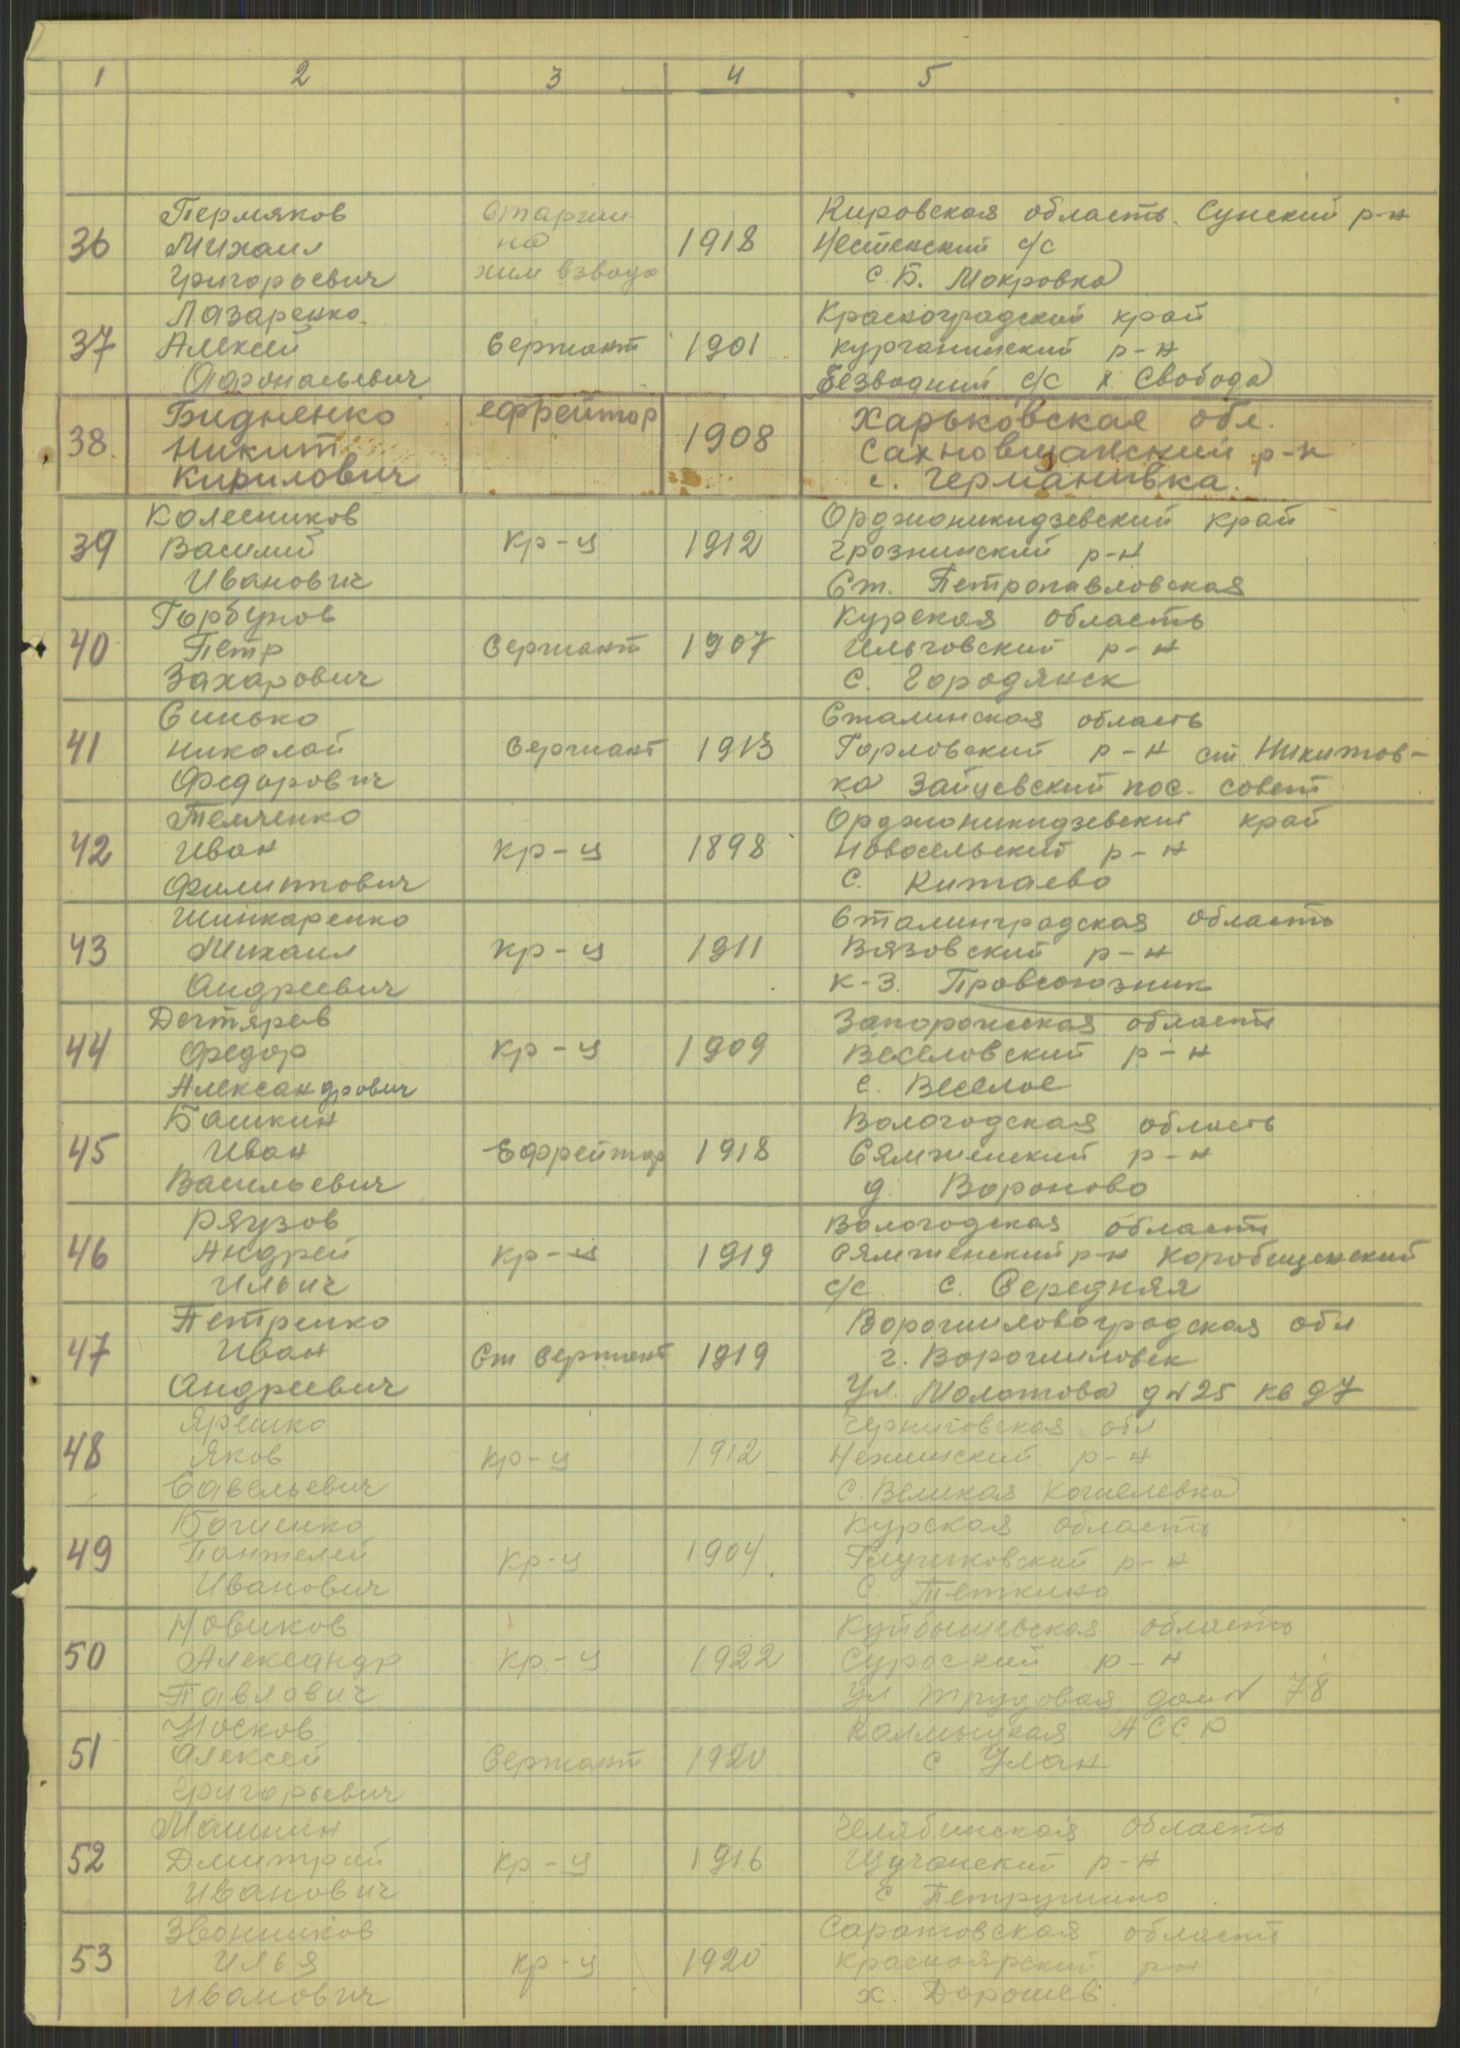 1 2 3 4 5
Пермяков Старшин Кировская область. Сунский р-н
36 Михаил на 1918 с/с
Григорьевич хим взвода с. Б. Мокровка
Лазаренко Красноградский край
37 Алексей Сержант 1901 курганинский р-н
Афонасьевич Безводний с/с х. Свобода
Бидненко ефрейтор Харьковская обл.
38 Никит 1908 Сахновщанский р-н
Кирилович с. Германивка.
Колесников Орджоникидзевский край
39 Василий кр-ц 1912 грознинский р-н
Иванович Ст. Петропавловская
Горбунов Курская область
40 Петр Сержант 1907 Ильговский р-н
Захарович с. Городянск
Синько Сталинская область
41 Николай Сержант 1913 Горловский р-н ст Никитов-
Федорович ка Зайцевский пос. совет
Темченко Орджоникидзевский край
42 Иван кр-ц 1898 Новосельский р-н
Филиппович с. Китаево
Шинкаренко Сталинградская область
43 Михаил кр-ц 1911 Вязовский р-н
Андреевич к-з. Правсоюзник
Дегтярев Запорожская область
44 Федор кр-ц 1909 Веселовский р-н
Александрович с. Веселое
Башкин Вологодская область
45 Иван Ефрейтор 1918 Сямженский р-н
Васильевич д. Вороново
Ряузов Вологодская область
46 Андрей кр-ц 1919 Сямженский р-н Коробищенский
Ильич с/с с. Середняя
Петренко Ворошиловоградская обл
47 Иван Ст Сержант 1919 г. Ворошиловск
Андреевич Ул. Молотова д N 25 кв 97
Ярешко Черниговская обл
48 Яков кр-ц 1912 Нежинский р-н
Савельевич с. Великая Кошелевка
Боженко Курская область
49 Пантелей кр-ц 1904 Глушковский р-н
Иванович с. Теткино
Новиков Куйбышевская область
50 Александр кр-ц 1922 р-н
Павлович Ул Трудовая дом N 78
Носков Калмыцкая АССР
51 Алексей Сержант 1920 с Улан
Григорьевич
Машнин Челябинская область
52 Дмитрий кр-ц 1916 Щучанский р-н
Иванович с Петрушино
Звонников Саратовская область
53 Илья кр-ц 1920 Красноярский рн
Иванович х. Дорошев